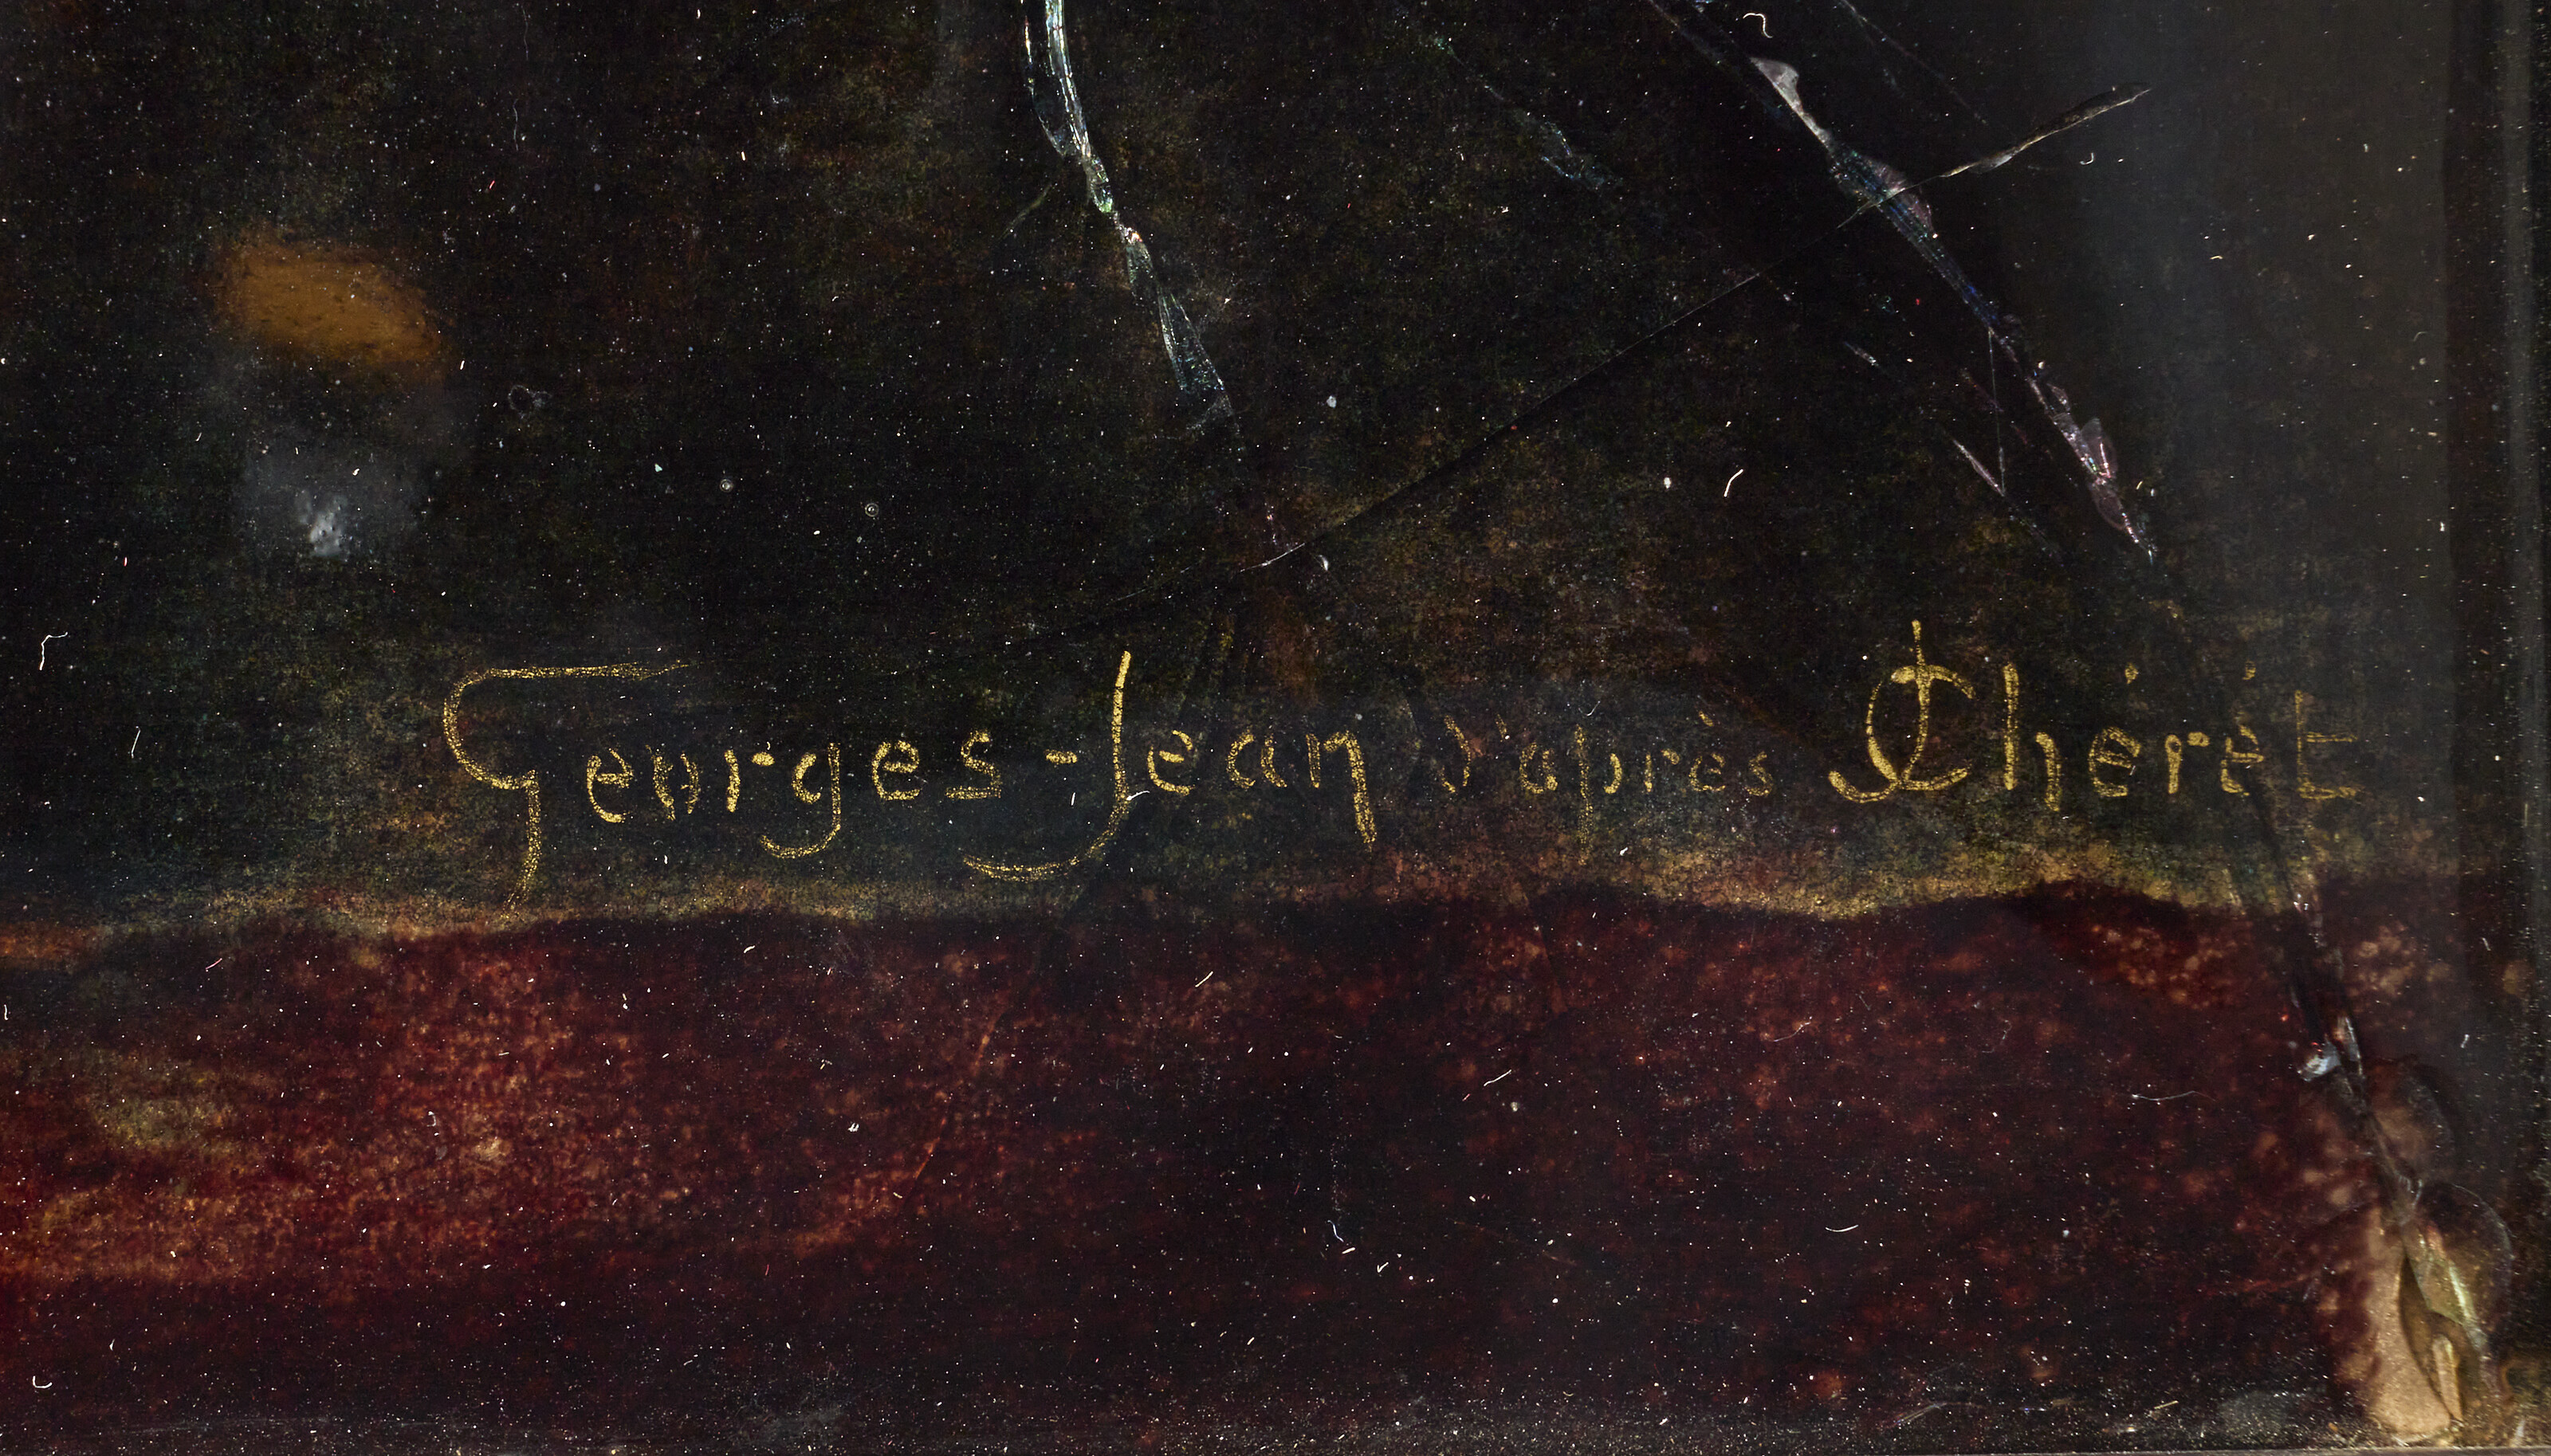 Georges-Jean d'après J Chérét